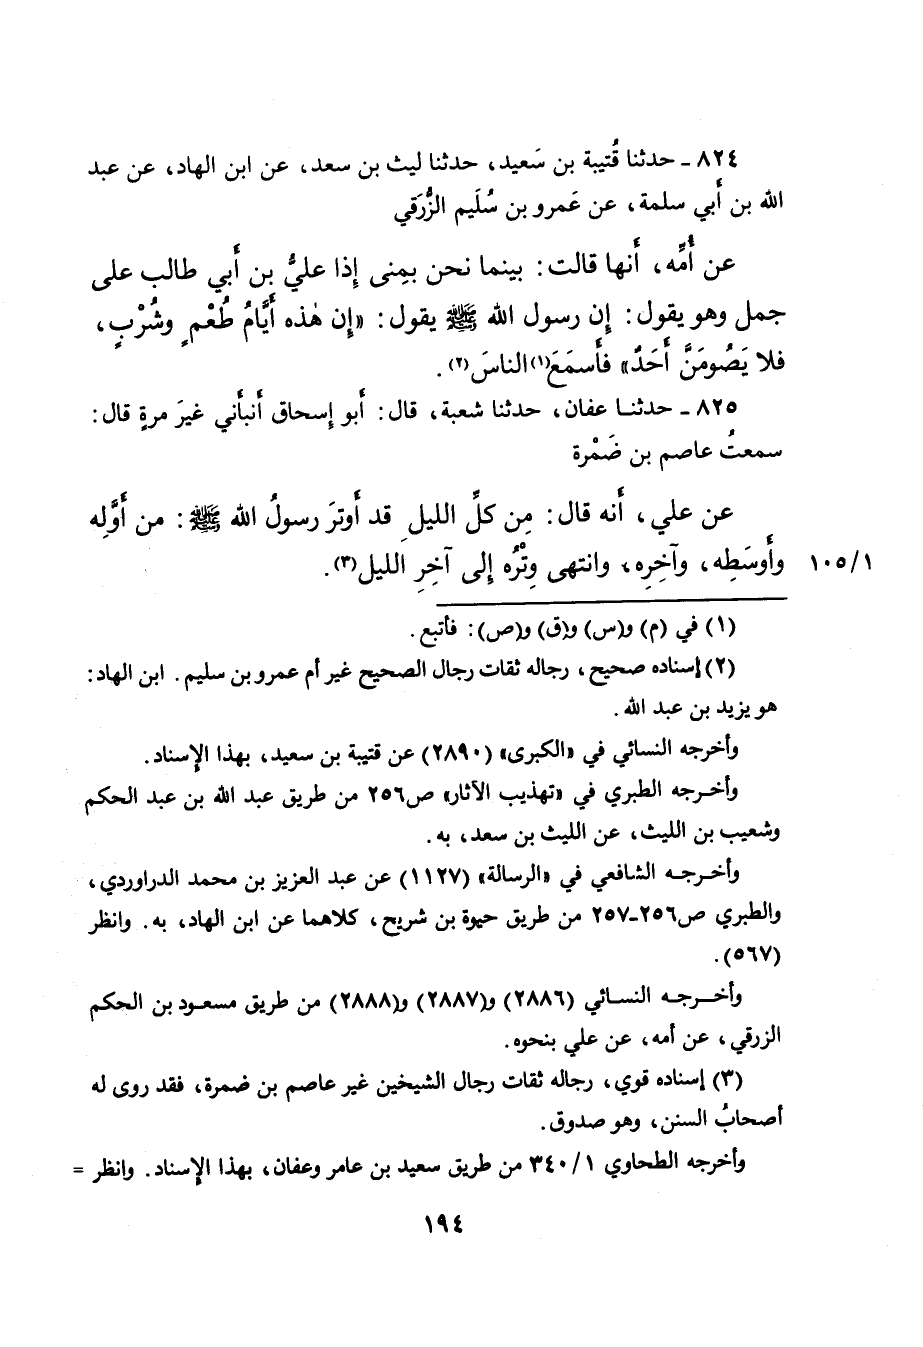 ٨٢٤ - حدثنا قُتيبة بن سَعيد، حدثنا ليث بن سعد، عن ابن الهاد، عن عبد
الله بن أَبي سلمة، عن عَمرو بن سُلَيم الزُّرَقي
عن أُمِّه، أَنها قالت: بينما نحن بمِنى إذا عليُّ بن أَبي طالب على
جمل وهو يقول: إن رسول الله ﷺ يقول: «إن هٰذه أَيَّامُ طُعْمٍ وشُرْبٍ،
فلا يَصُومَنَّ أَحَدٌ» فأَسمَعَ(١) الناسَ(٢).
٨٢٥ - حدثنا عفان، حدثنا شعبة، قال: أَبو إسحاق أَنبأَني غيرَ مرةٍ قال:
سمعتُ عاصم بن ضَمْرة
عن علي، أَنه قال: مِن كلِّ الليلِ قد أَوترَ رسولُ الله ﷺ: من أَوَّلِه
وأَوسَطِه، وآخِرِه، وانتهى وِتْرُه إلى آخِرِ الليل(٣). ١٠٥/١
(١) في (م) و(س) و(ق) و(ص): فأتبع.
(٢) إسناده صحيح، رجاله ثقات رجال الصحيح غير أم عمرو بن سليم. ابن الهاد:
هو يزيد بن عبد الله.
وأخرجه النسائي في «الكبرى» (٢٨٩٠) عن قتيبة بن سعيد، بهذا الإسناد.
وأخرجه الطبري في «تهذيب الآثار» ص٢٥٦ من طريق عبد الله بن عبد الحكم
وشعيب بن الليث، عن الليث بن سعد، به.
وأخرجه الشافعي في «الرسالة» (١١٢٧) عن عبد العزيز بن محمد الدراوردي،
والطبري ص٢٥٦-٢٥٧ من طريق حيوة بن شريح، كلاهما عن ابن الهاد، به. وانظر
(٥٦٧).
وأخرجه النسائي (٢٨٨٦) و(٢٨٨٧) و(٢٨٨٨) من طريق مسعود بن الحكم
الزرقي، عن أمه، عن علي بنحوه.
(٣) إسناده قوي، رجاله ثقات رجال الشيخين غير عاصم بن ضمرة، فقد روى له
أصحابُ السنن، وهو صدوق.
وأخرجه الطحاوي ٣٤٠/١ من طريق سعيد بن عامر وعفان، بهذا الإسناد. وانظر =
١٩٤